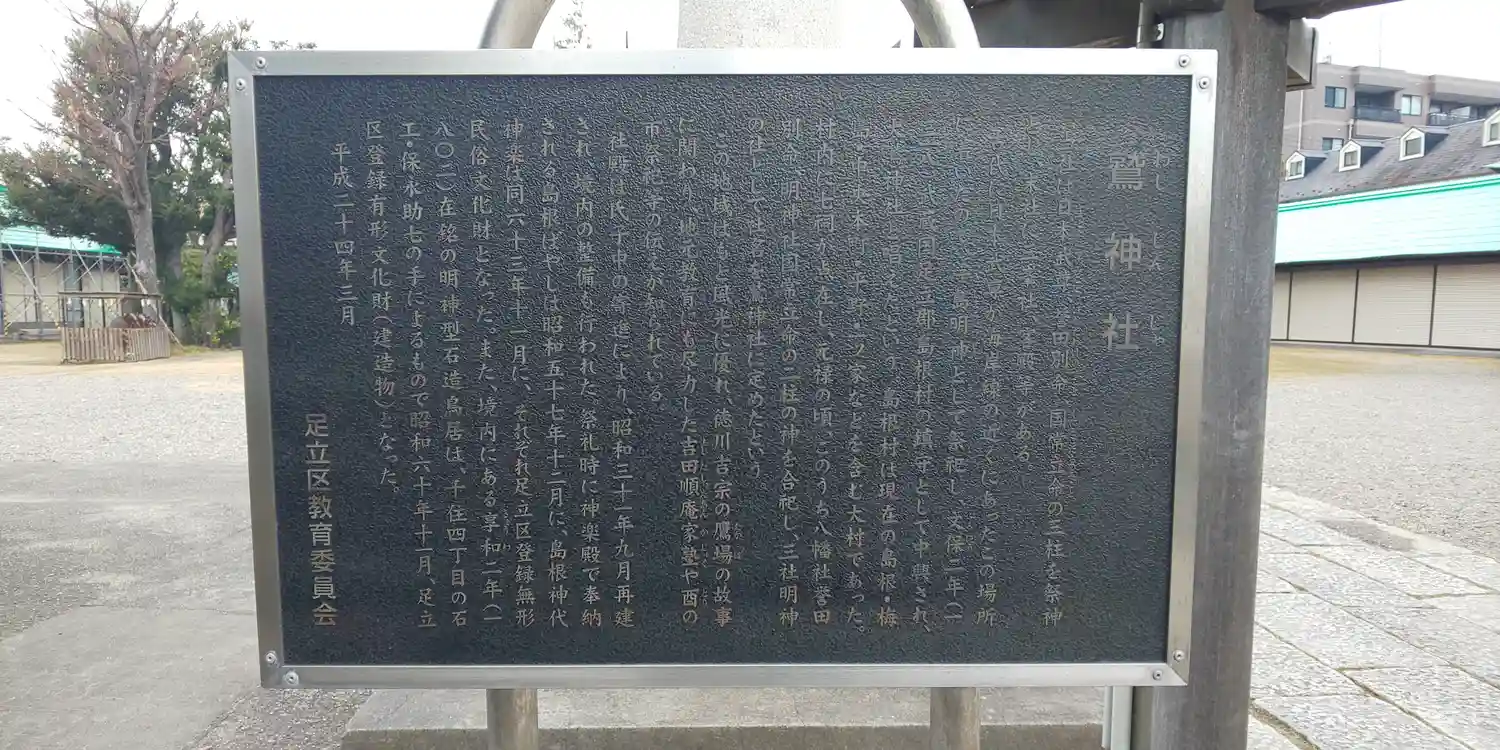 鷲神社
わし じん じゃ
社は日本武尊、誉田別命、国常立命の三柱を祭神
とし、末社て三峯社、宝殿等がある。
氏に日本武尊が海岸線の近くにあったこの場所
島明神として祭祀し、文保二年(一
国足立郡島根村の鎮守として中興され、
昔たという。島根村は現在の島根・梅
島・中央本町・平野・一ツ家などを含む大村であった。
村内に七祠が点在し、元禄の頃、このうち八幡社誉田
別命、明神社国常立命の二柱の神を合祀し、三社明神
の社として社名を鷲神社に定めたという。
この地域はもと風光に優れ、徳川吉宗の鷹場の故事
に関わり、地元教育にも尽力した吉田順庵家塾や酉の
市祭祀等の伝えが知られている。
社殿は氏子中の寄進により、昭和三十一年九月再建
され、境内の整備も行われた。祭礼時に神楽殿で奉納
される島根ばやしは昭和五十七年十二月に、島根神代
神楽は同六十三年十一月に、それぞれ足立区登録無形
民俗文化財となった。また、境内にある享和二年(一
八〇二)在銘の明神型石造鳥居は、千住四丁目の石
工・保永助七の手によるもので昭和六十年十一月、足立
区登録有形文化財(建造物)となった。
平成二十四年三月
足立区教育委員会